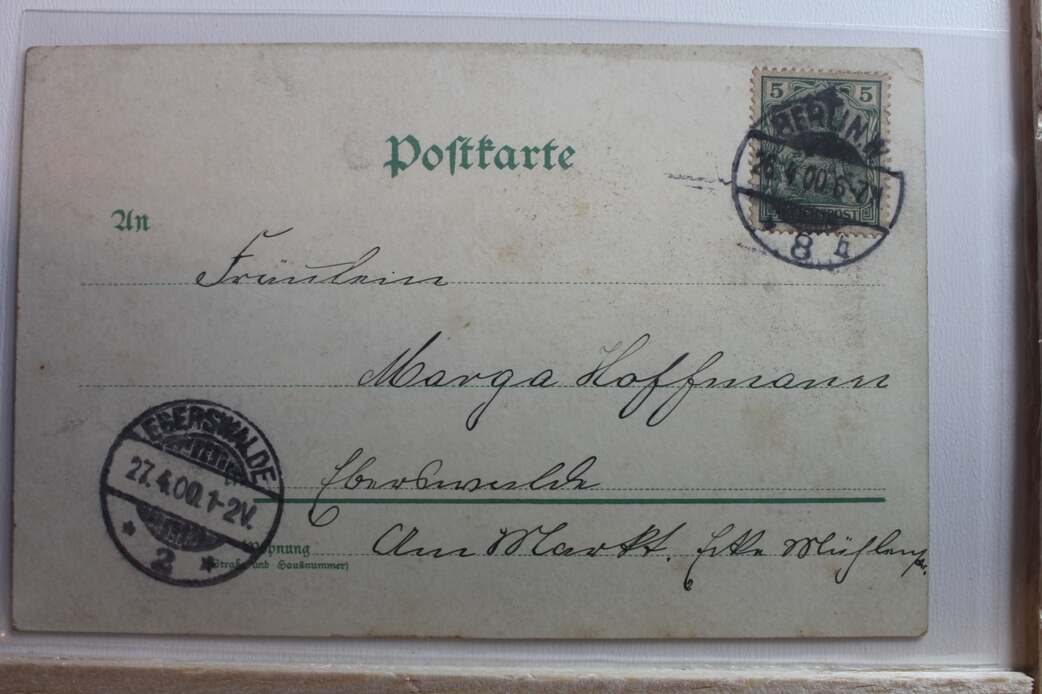 5 5
BERLIN. N
26.4.00.6-7N
REICHSPOST
8 h
Postkarte
An
Fräulein
Marga Hoffmann
Eberswalde
Am Markt. Ecke Mühlenstr.
Wohnung
(Straße und Hausnummer)
EBERSWALDE
27.4.00.1-2V.
* 2 *